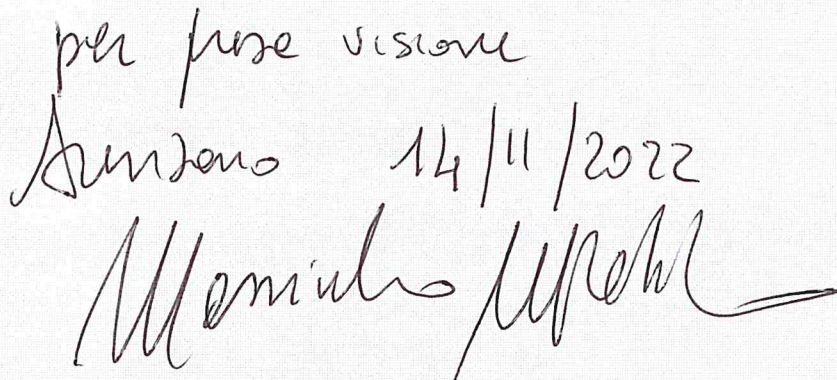 per presa visione
Arenzano 14/11/2022